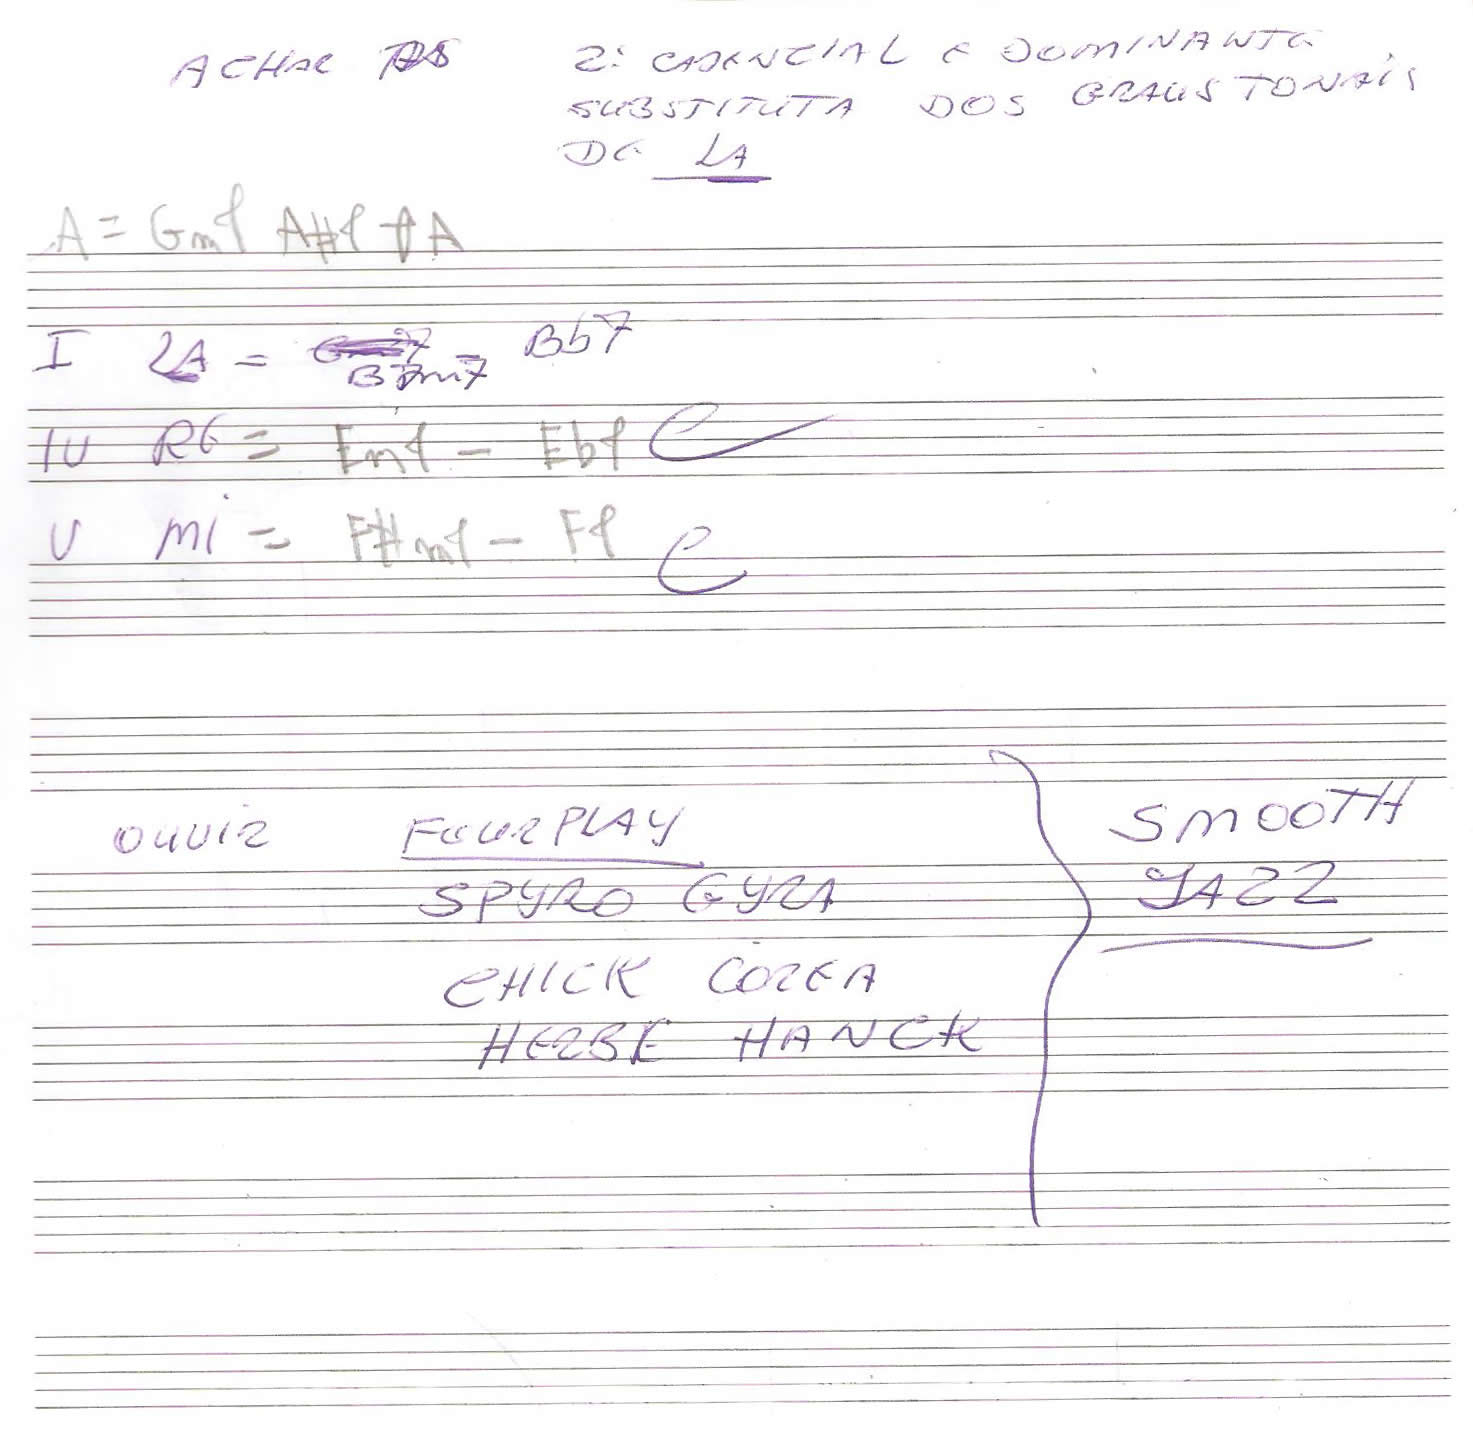 ACHAR AS 2º CADENCIAL E DOMINANTE
SUBSTITUTA DOS GRAUS TONAIS
DE LA
A = Gm7 A#7 A
I LA = Bm7 - Bb7
IV RE = Em7 - Eb7 C
V MI = F#m7 - F7 C
OUVIR FOURPLAY
SPYRO GYRA
CHICK COREA
HERBE HANCK
SMOOTH
JAZZ